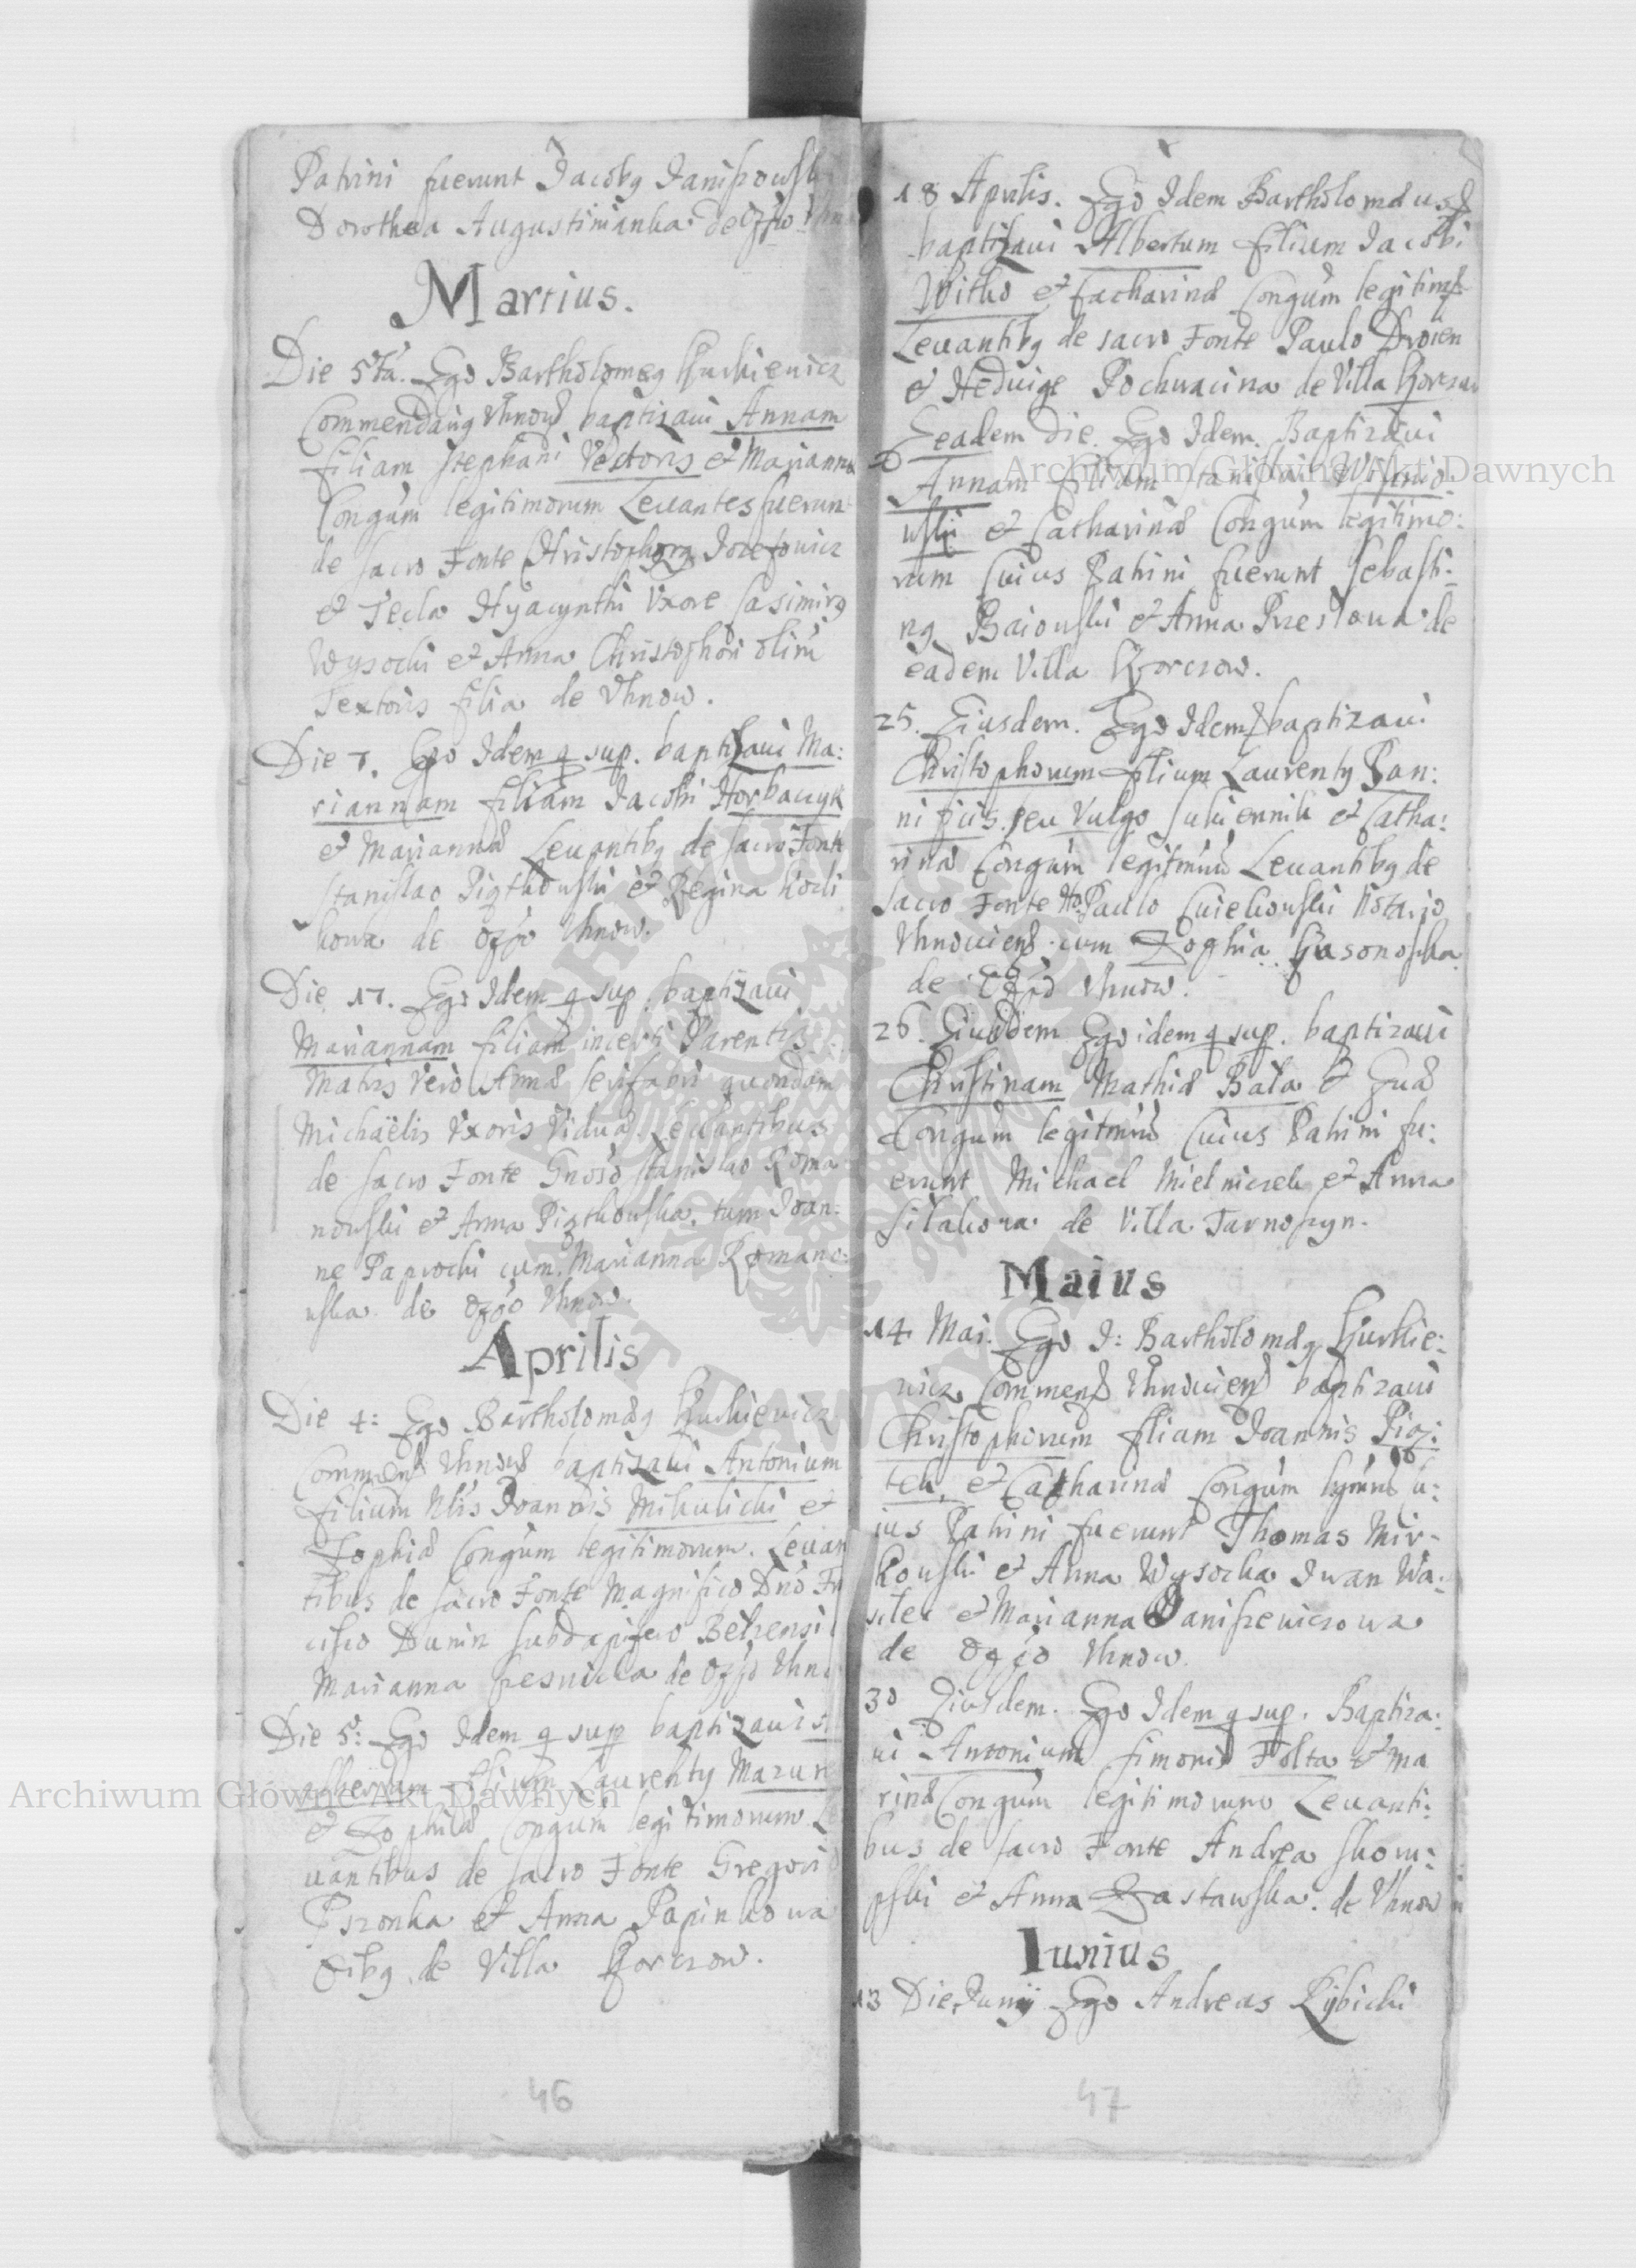 Patrini fuerunt Jacobg Janiszowski
Dorothea Augustinianka de Oppio
Martius.
Die 5ta. Ego Bartholomeg Kurkiewicz
Commendarig Vhnow baptizaui Annam
filiam Stephani Textoris et Marianna
Congum legitimorum Leuantes fuerun
de sacro Fonte Christophorg Jozefowicz
et Tecla Hyacynthi Vxore Casimirg
Wysocki et Anna Christophori olim
Textoris filia de Vhnow.
Die 7. Ego Idem q sup. baptizaui Ma:
riannam filiam Jacobi Horbaczyk
et Marianna Leuantibg de sacro Fonte
Stanislao Piątkowski et Regina
kowa de Oppo Vhnow.
Die 17. Ego Idem q sup. baptizaui
Mariannam filiam incerti Parentis
Matris vero Anna serifabri quondam
Michaëlis Vxoris Vidua. Leuantibus
de sacro Fonte Gnoso Stanislao Roma
nowski et Anna Piątkowska. tum Joan:
ne Paprocki cum Marianna Romano:
wska de Oppo Vhnow.
Aprilis
Die 4: Ego Bartholomæg Kurkiewicz
Commend Vhnow baptizaui Antonium
filium Nlis Joannis Mikulicki et
Zophia Congum legitimorum. Leuan
tibus de sacro Fonte Magnifico Dno Fr
cisco Dunin subdapifero Belzensi
Marianna de Oppo Vhno
Die 5: Ego Idem q sup baptizaui
filium Laurenty Mazur
et Zophia Congum legitimorum Le
uantibus de sacro Fonte Gregori
Pszonka et Anna Papinkowa
Oibg de Villa Korczow.
46
18 Aprilis. Ego Idem Bartholomæus
baptizaui Albertum filium Jacobi
Witko et Catharina Congum legitim
Leuantibg de sacro Fonte Paulo Drozen
et Heduige Pochwacina de Villa Korczow
Eeadem Die. Ego Idem. Baptizaui
Annam filiam Stanislai Wisnio:
wski et Catharina Congum legitimo:
rum Cuius Patrini fuerunt Sebasti:
ng Baiowski et Anna Przestowa de
eadem Villa Korczow.
25. Eiusdem. Ego Idem baptizaui
Christophorum filium Laurenty Pan:
nificis. seu Vulgo Sukiennik et Catha:
rina Congum legitimm Leuantibg de
sacro Fonte Ho. Paulo Cwiekowski Notario
Vhnouiens. cum Zophia Gasonoska
de Oppo Vhnow.
26. Eiusdem Ego idem q sup. baptizaui
Christinam Mathia Bala et Eua
Congum legitimm Cuius Patrini fu:
erunt Michael Mielniczek et Anna
Silakowa de Villa Tarnoszyn.
Maius
14 Mai. Ego I: Bartholomæg Kurkie:
wicz Commend Vhnouien baptizaui
Christophorum filiam Joannis Pią:
tek, et Catharina Congum lgmm Cu:
ius Patrini fuerunt Thomas Mir-
kowski et Anna Wysocka Iwan Wa:
silec et Marianna Daniszewiczowa
de Oppo Vhnow.
30 Eiusdem. Ego Idem q sup. Baptiza:
ui Antonium Simonis Folta et Ma
rina Congum legitimorum Leuanti:
bus de sacro Fonte Andrea Skom:
pski et Anna Zastawska. de Vhnow
Iunius
13 Die Junij Ego Andreas Rybicki
47
Archiwum Główne Akt Dawnych
Archiwum Główne Akt Dawnych
ARCHIWUM GŁÓWNE AKT DAWNYCH